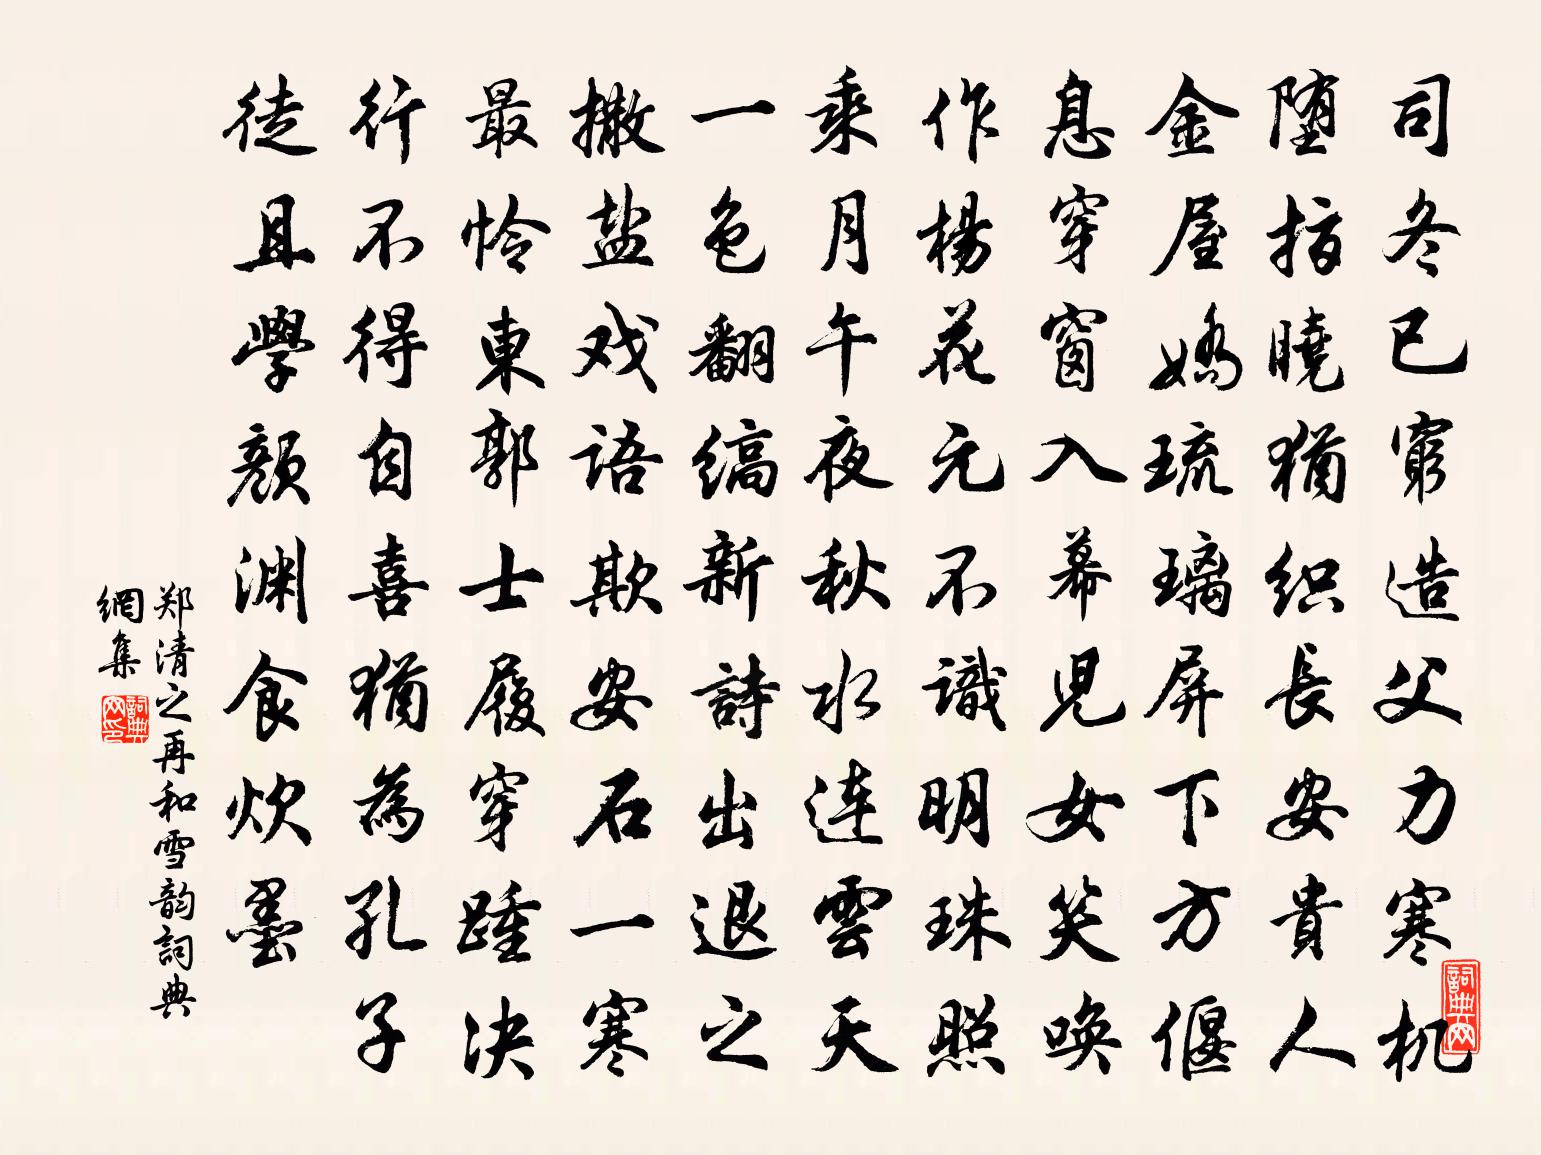 司冬已窮造父力寒机
堕指曉猶织長安貴人
金屋嬌琉璃屏下方偃
息穿窗入幕児女笑唤
作楊花元不識明珠照
乘月午夜秋水连雲天
一色翻缟新詩出退之
撒盐戏語欺安石一寒
最怜東郭士履穿踵决
行不得自喜猶為孔子
徒且學颜渊食炊墨
郑清之再和雪韵詞典
網集
詞典网印
詞典网